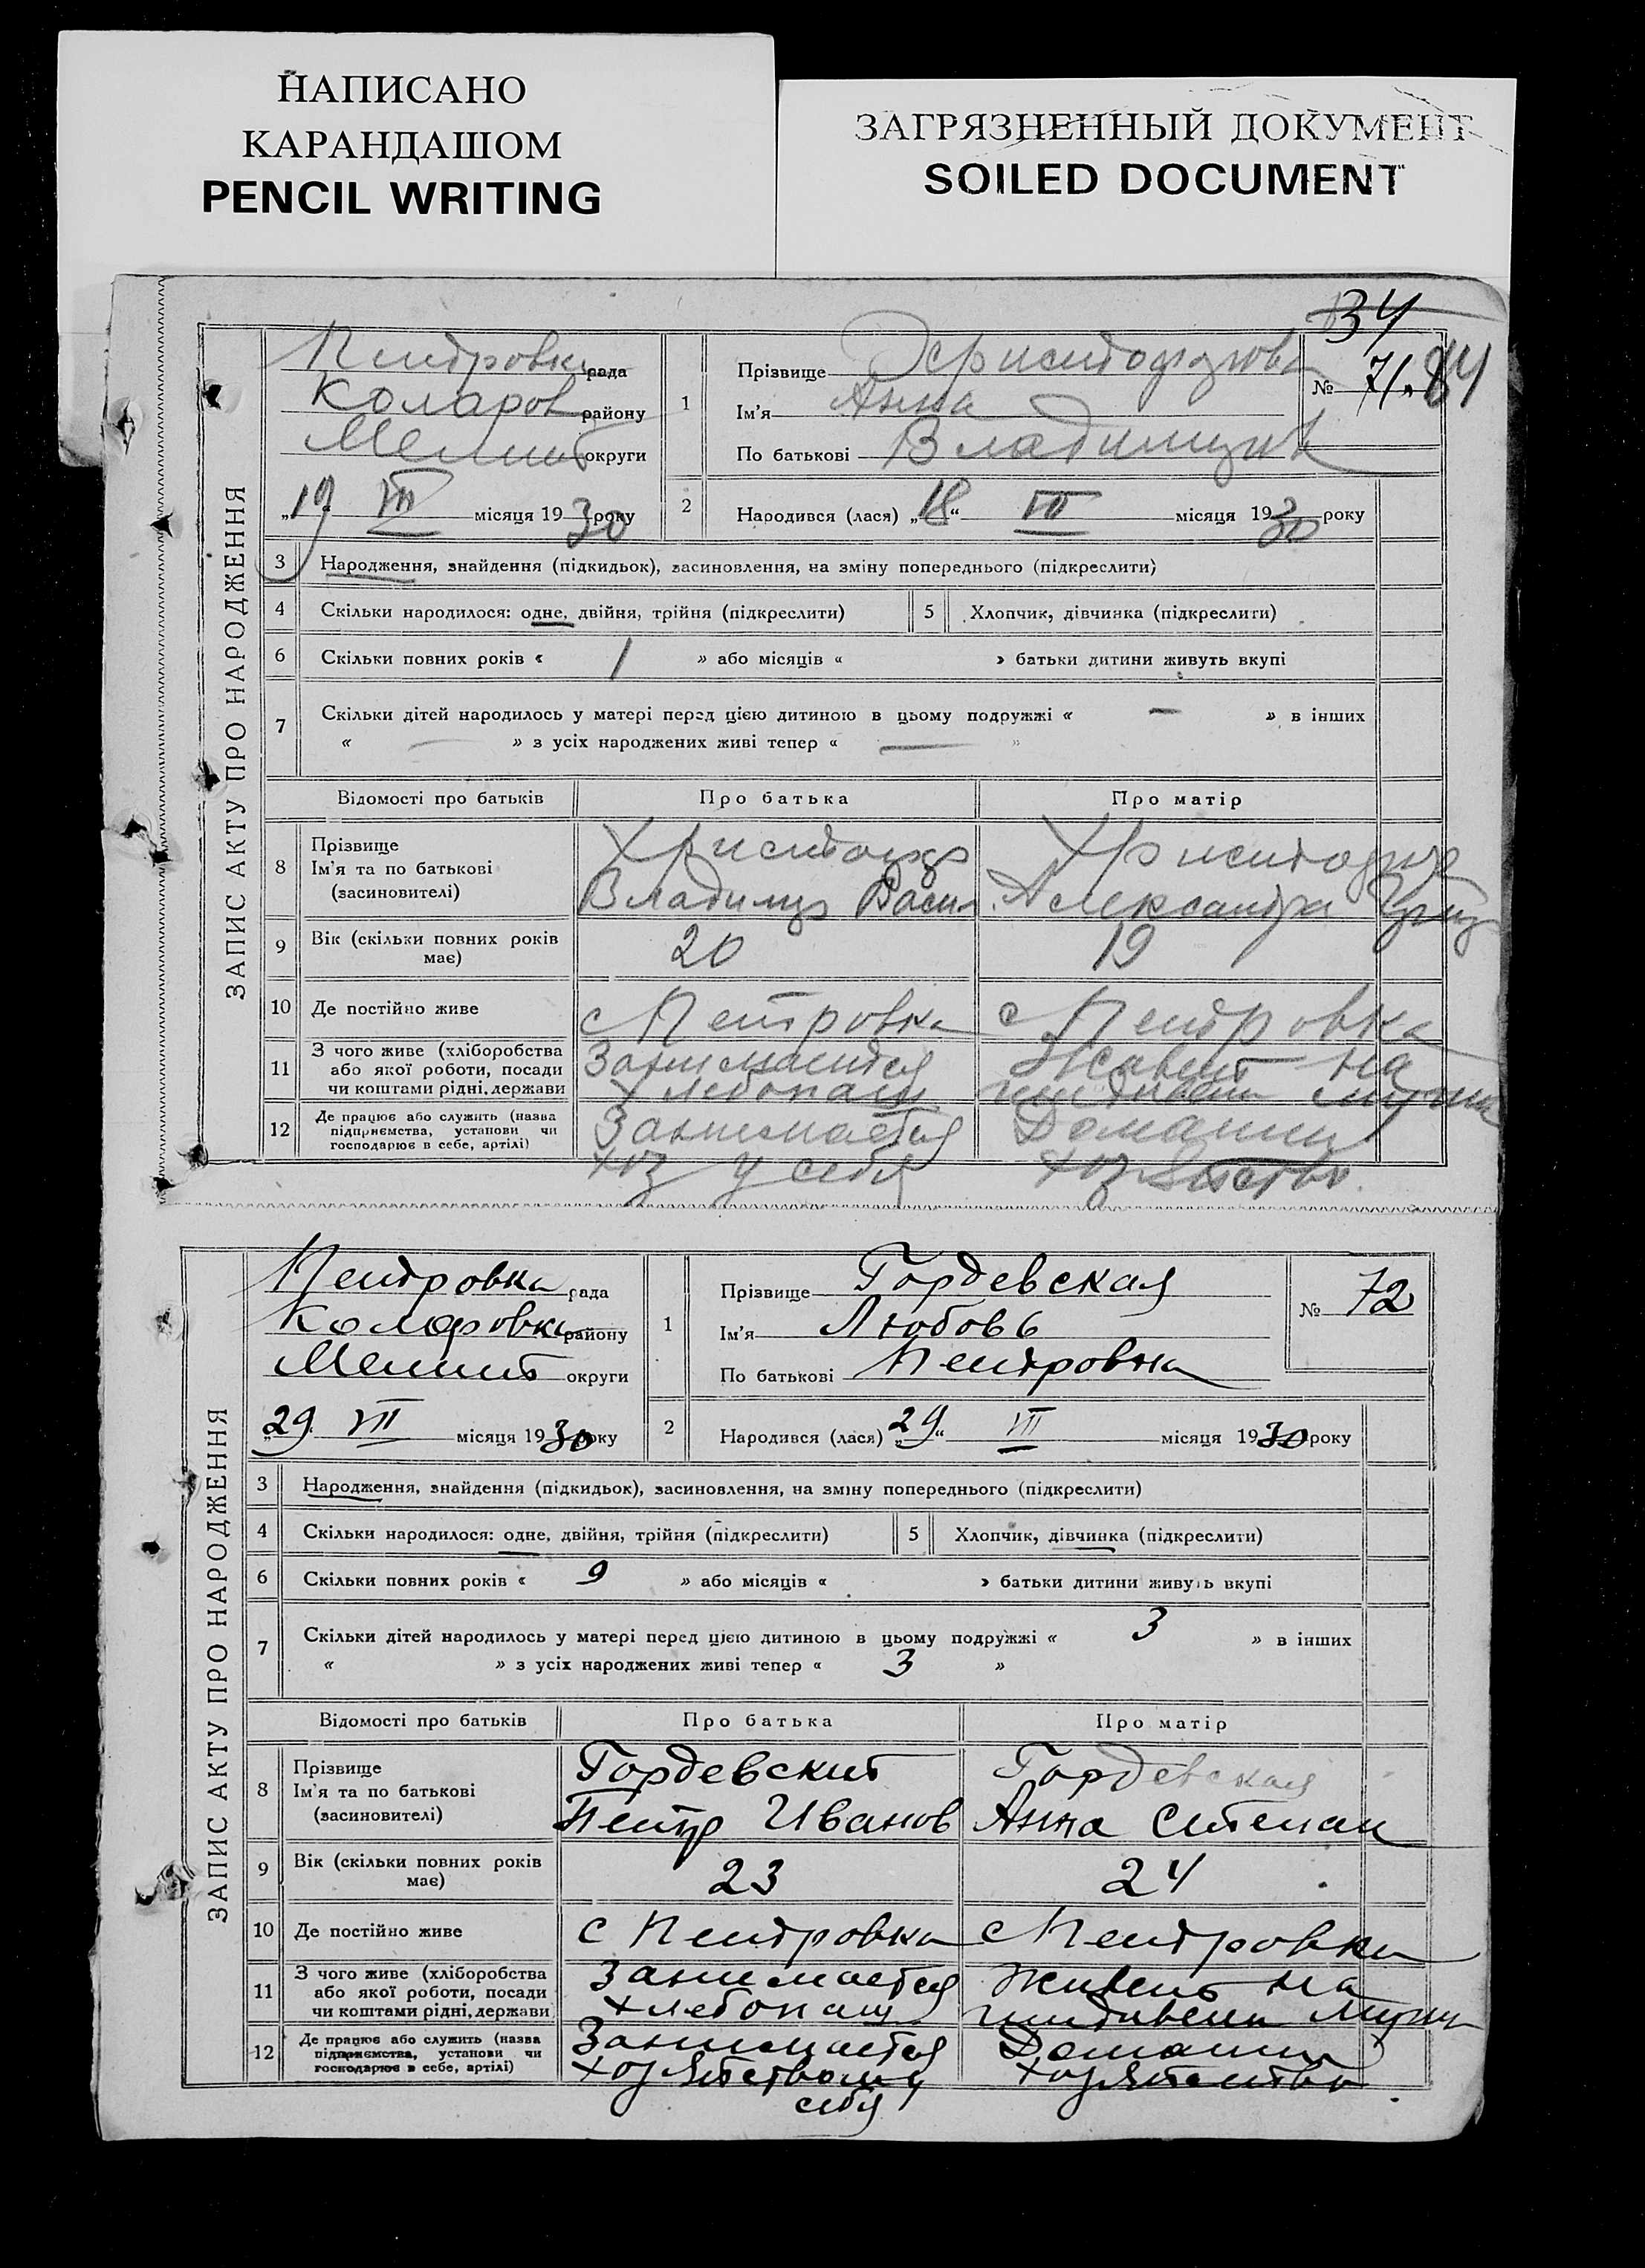 НАПИСАНО
КАРАНДАШОМ
PENCIL WRITING
ЗАГРЯЗНЕННЫЙ ДОКУМЕНТ
SOILED DOCUMENT
34
ЗАПИС АКТУ ПРО НАРОДЖЕННЯ
Петровка рада
Коларов району
Мелит округи
„19“ VII місяця 1930 року
1 Прізвище
Ім'я Анна
По батькові Владимиров
№ 71 84
2 Народився (лася) „18“ VII місяця 1930 року
3 Народження, знайдення (підкидьок), засиновлення, на зміну попереднього (підкреслити)
4 Скільки народилося: одне, двійня, трійня (підкреслити) 5 Хлопчик, дівчинка (підкреслити)
6 Скільки повних років « 1 » або місяців « » батьки дитини живуть вкупі
7 Скільки дітей народилось у матері перед цією дитиною в цьому подружжі « — » в інших
« — » з усіх народжених живі тепер « — »
Відомості про батьків Про батька Про матір
8 Прізвище
Ім'я та по батькові
(засновителі)
Владимир Васил Александра
9 Вік (скільки повних років має) 20 19
10 Де постійно живе с Петровка с Петровка
11 З чого живе (хліборобства
або якої роботи, посади
чи коштами рідні, держави
Занимается Живет на
хлебопаш иждивени мужа
12 Де працює або служить (назва
підприємства, установи чи
господарює в себе, артілі)
Занимается Домашни
хоз у себя хозяйство
ЗАПИС АКТУ ПРО НАРОДЖЕННЯ
Петровка рада
Коларовка району
Мелит округи
„29“ VII місяця 1930 року
1 Прізвище Гордевская
Ім'я Любовь
По батькові Петровна
№ 72
2 Народився (лася) „29“ VII місяця 1930 року
3 Народження, знайдення (підкидьок), засиновлення, на зміну попереднього (підкреслити)
4 Скільки народилося: одне, двійня, трійня (підкреслити) 5 Хлопчик, дівчинка (підкреслити)
6 Скільки повних років « 9 » або місяців « » батьки дитини живуть вкупі
7 Скільки дітей народилось у матері перед цією дитиною в цьому подружжі « 3 » в інших
« » з усіх народжених живі тепер « 3 »
Відомості про батьків Про батька Про матір
8 Прізвище
Ім'я та по батькові
(засиновителі)
Гордевский Гордевская
Петр Иванов Анна Степан
9 Вік (скільки повних років має) 23 24
10 Де постійно живе с Петровка с Петровка
11 З чого живе (хліборобства
або якої роботи, посади
чи коштами рідні, держави
Занимается Живень на
хлебопаш иждивени мужа
12 Де працює або служить (назва
підприємства, установи чи
господарює в себе, артілі)
Занимается Домашни
хозяйством у хозяйство
себя